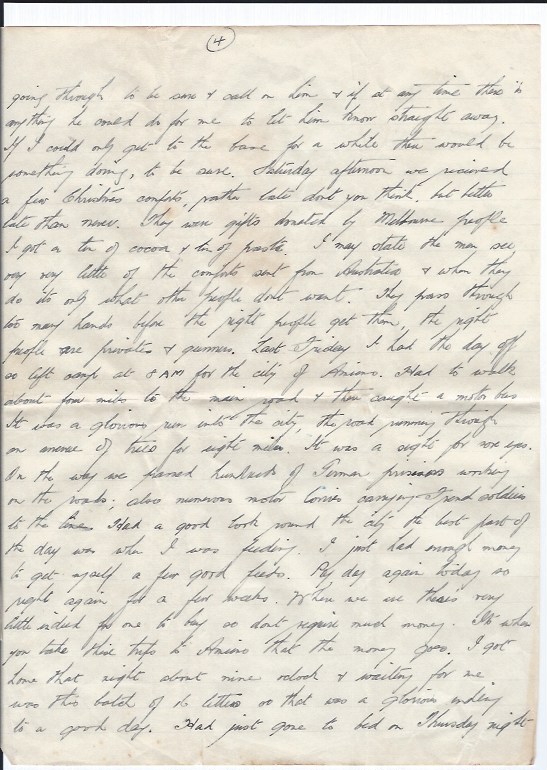 (4)
going through to be sure & call on him & if at any time there is
anything he could do for me to let him know straight away.
If I could only get to the base for a while there would be
something doing, to be sure. Saturday afternoon we received
a few Christmas comforts, rather late dont you think, but better
late than never. They were gifts donated by Melbourne people
I got a tin of cocoa & tin of paste. I may state the men see
very very little of the comforts sent from Australia & when they
do its only what other people dont want. They pass through
too many hands before the right people get them, the right
people are privates & gunners. Last Friday I had the day off
so left camp at 8 AM for the city of Amiens. Had to walk
about four miles to the main road & then caught a motor bus
It was a glorious run into the city, the road running through
an avenue of trees for eight miles. It was a sight for sore eyes.
On the way we passed hundreds of German prisoners working
on the roads; also numerous motor lorries carrying French soldiers
to the line. Had a good look round the city the best part of
the day was when I was feeding. I just had enough money
to get myself a few good feeds. Pay day again today so
right again for a few weeks. Where we are theres very
little indeed for one to buy so dont require much money. Its when
you take these trips to Amiens that the money goes. I got
home that night about nine oclock & waiting for me
was this batch of 26 letters so that was a glorious ending
to a good day. Had just gone to bed on Thursday night